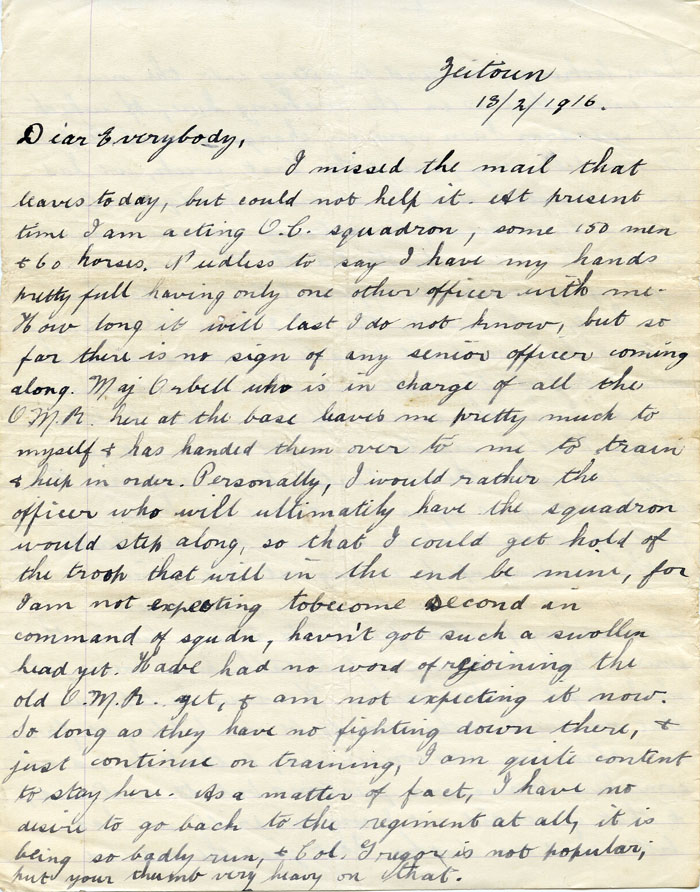 Zeitoun
13/2/1916.
Dear Everybody,
I missed the mail that
leaves today, but could not help it. At present
time I am acting O.C. squadron, some 150 men
& 60 horses. Needless to say I have my hands
pretty full having only one other officer with me.
How long it will last I do not know, but so
far there is no sign of any senior officer coming
along. Maj Orbell who is in charge of all the
O.M.R. here at the base leaves me pretty much to
myself & has handed them over to me to train
& keep in order. Personally, I would rather the
officer who will ultimately have the squadron
would step along, so that I could get hold of
the troop that will in the end be mine, for
I am not expecting to become second in
command of squdn, havn't got such a swollen
head yet. Have had no word of rejoining the
old O.M.R. yet, & am not expecting it now.
So long as they have no fighting down there, &
just continue on training, I am quite content
to stay here. As a matter of fact, I have no
desire to go back to the regiment at all, it is
being so badly run, & Col. Gregor is not popular;
put your thumb very heavy on that.